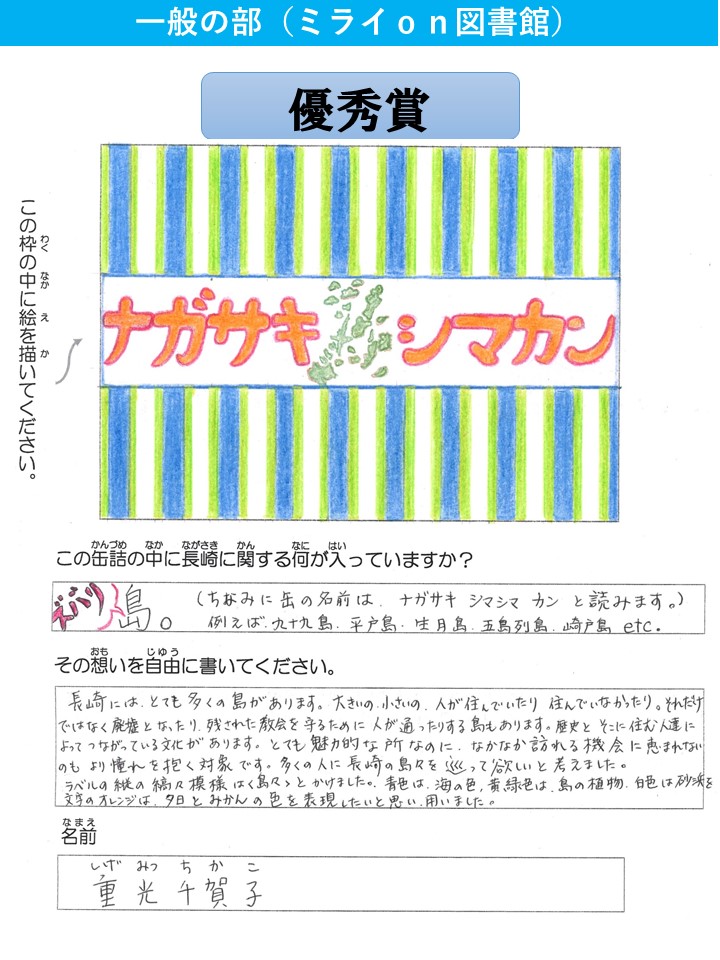 一般の部（ミライｏｎ図書館）
優秀賞
この枠の中に絵を描いてください。
わく なか え か
ナガサキ シマカン
かんづめ なか ながさき かん なに はい
この缶詰の中に長崎に関する何が入っていますか？
ズバリ 島。
（ちなみに缶の名前は、ナガサキ シマシマ カン と読みます。）
例えば、九十九島、平戸島、生月島、五島列島、崎戸島 etc.
おも じゆう
その想いを自由に書いてください。
長崎には、とても多くの島があります。大きいの、小さいの、人が住んでいたり 住んでいなかったり。それだけ
ではなく廃墟となったり、残された教会を守るために人が通ったりする島もあります。歴史と そこに住む人達に
よってつながっている文化があります。とても魅力的な所なのに、なかなか訪れる機会に恵まれない
のも より憧れを抱く対象です。多くの人に長崎の島々を巡って欲しいと考えました。
ラベルの縦の縞々模様はく島々＞とかけました。青色は、海の色、黄緑色は、島の植物、白色は砂浜を
文字のオレンジは、夕日とみかんの色を表現したいと思い、用いました。
なまえ
名前
しげ みつ ち か こ
重光千賀子